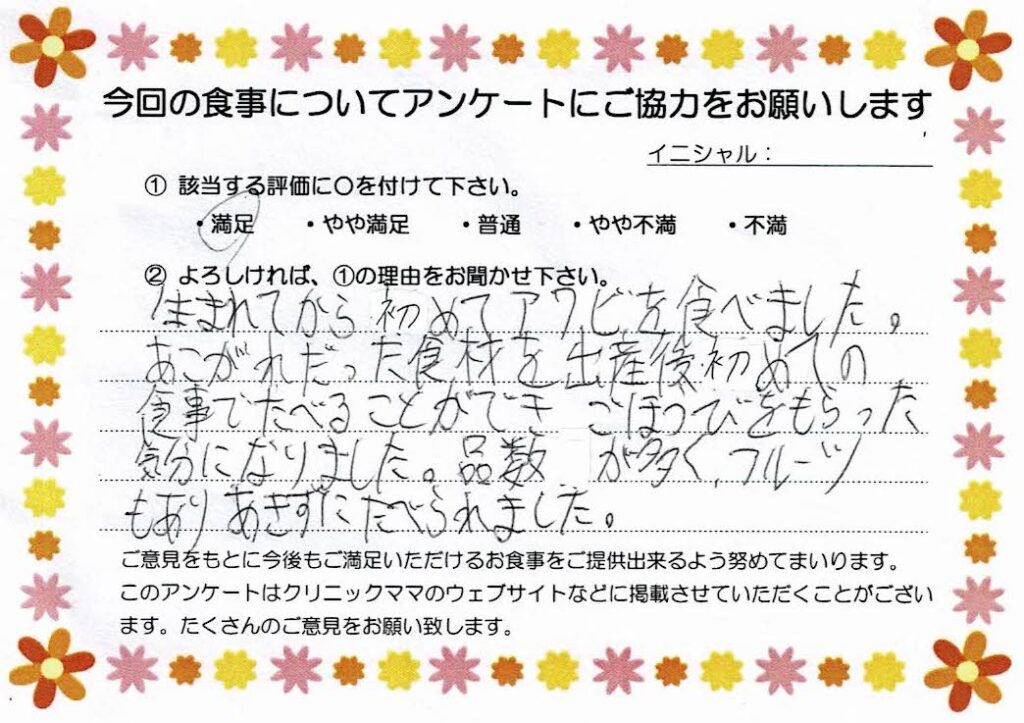 今回の食事についてアンケートにご協力をお願いします
イニシャル：
① 該当する評価に〇を付けて下さい。
・満足 ・やや満足 ・普通 ・やや不満 ・不満
② よろしければ、①の理由をお聞かせ下さい。
生まれてから初めてアワビを食べました。
あこがれだった食材を出産後初めての
食事でたべることができ ごほうびをもらった
気分になりました。品数が多く、フルーツ
もあり あきずにたべられました。
ご意見をもとに今後もご満足いただけるお食事をご提供出来るよう努めてまいります。
このアンケートはクリニックママのウェブサイトなどに掲載させていただくことがござい
ます。たくさんのご意見をお願い致します。